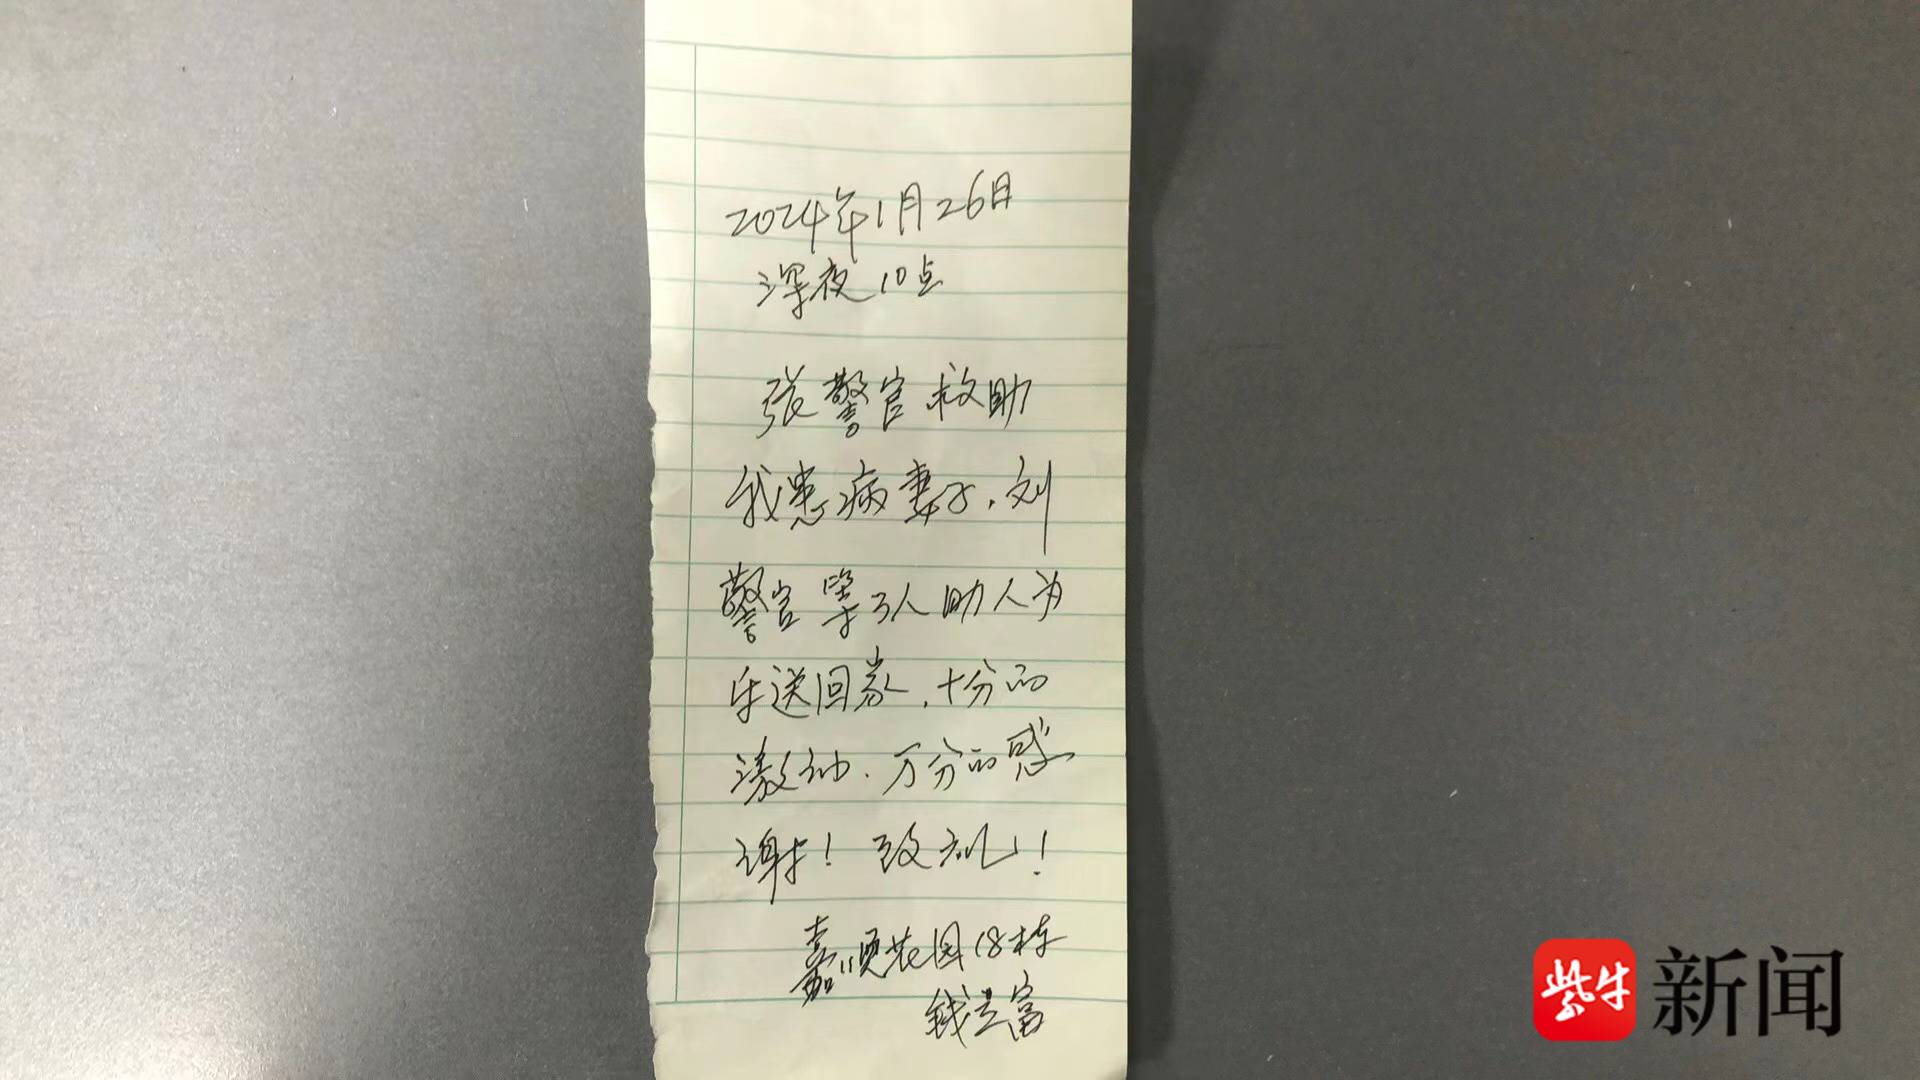 2024年1月26日
深夜10点
张警官救助
我患病妻子.刘
警官等3人助人为
乐送回家.十分的
激动.万分的感
谢!致礼!
嘉顺花园18栋
钱立富
紫牛新闻